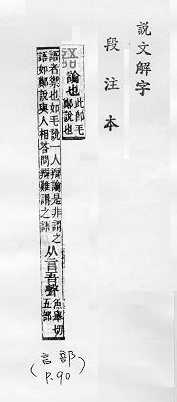 說文解字
段注本
語
論也
此卽毛
鄭說也
語者禦也如毛說一人辯論是非謂之
語如鄭說與人相荅問辯難謂之語
从言吾聲
魚舉切
五部
(言部)
P.90